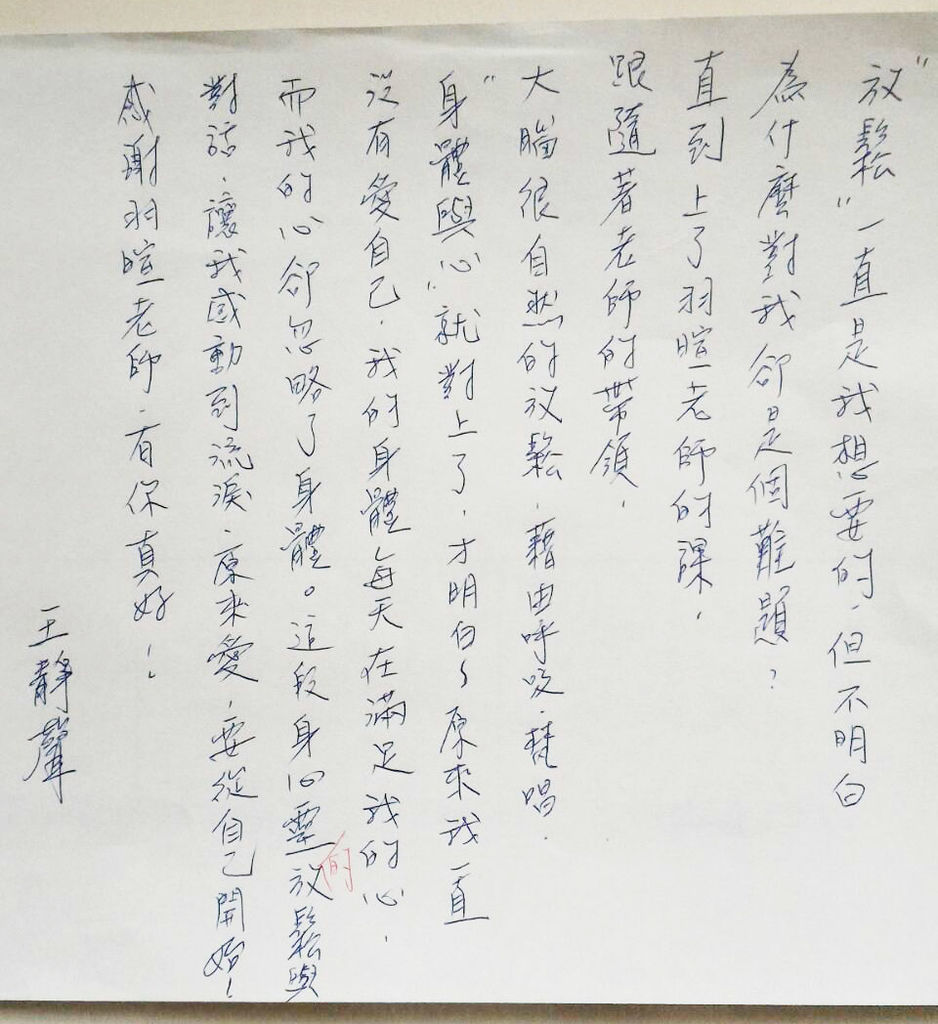 "放鬆"一直是我想要的,但不明白
為什麼對我卻是個難題?
直到上了羽暄老師的課,
跟隨著老師的帶領,
大腦很自然的放鬆,藉由呼吸、梵唱,
"身體與心"就對上了,才明白~原來我一直
沒有愛自己,我的身體每天在滿足我的心,
而我的心卻忽略了身體。這段身心靈的放鬆與
對話,讓我感動到流淚,原來愛,要從自己開始!
感謝羽暄老師,有你真好!
王靜聲